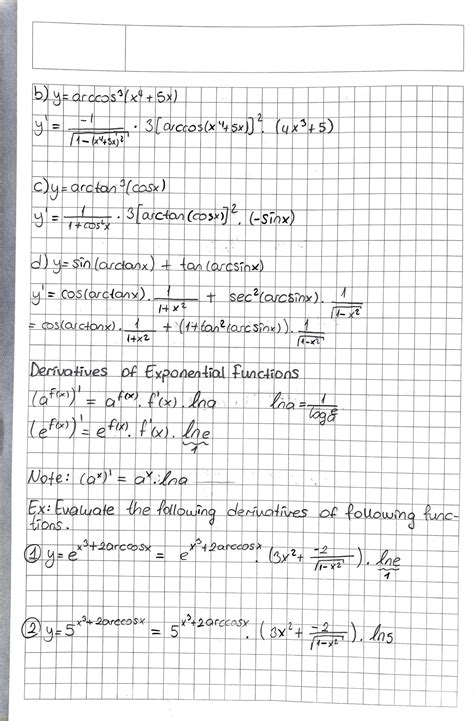 b) y = arccos³(x⁴ + 5x)
y' = -1/√(1-(x⁴+5x)²) · 3[arccos(x⁴+5x)]² · (4x³+5)
c) y = arctan³(cosx)
y' = 1/(1+cos²x) · 3[arctan(cosx)]² · (-sinx)
d) y = sin(arctanx) + tan(arcsinx)
y' = cos(arctanx) · 1/(1+x²) + sec²(arcsinx) · 1/√(1-x²)
= cos(arctanx) · 1/(1+x²) + (1+tan²(arcsinx)) · 1/√(1-x²)
Derivatives of Exponential Functions
(a^f(x))' = a^f(x) · f'(x) · lna    lna =
(e^f(x))' = e^f(x) · f'(x) · lne
1
Note: (aˣ)' = aˣ · lna
Ex: Evaluate the following derivatives of following func-
tions.
① y = e^(x³+2arccosx) = e^(x³+2arccosx) · (3x² + -2/√(1-x²)) · lne
1
② y = 5^(x³+2arccosx) = 5^(x³+2arccosx) · (3x² + -2/√(1-x²)) · ln5